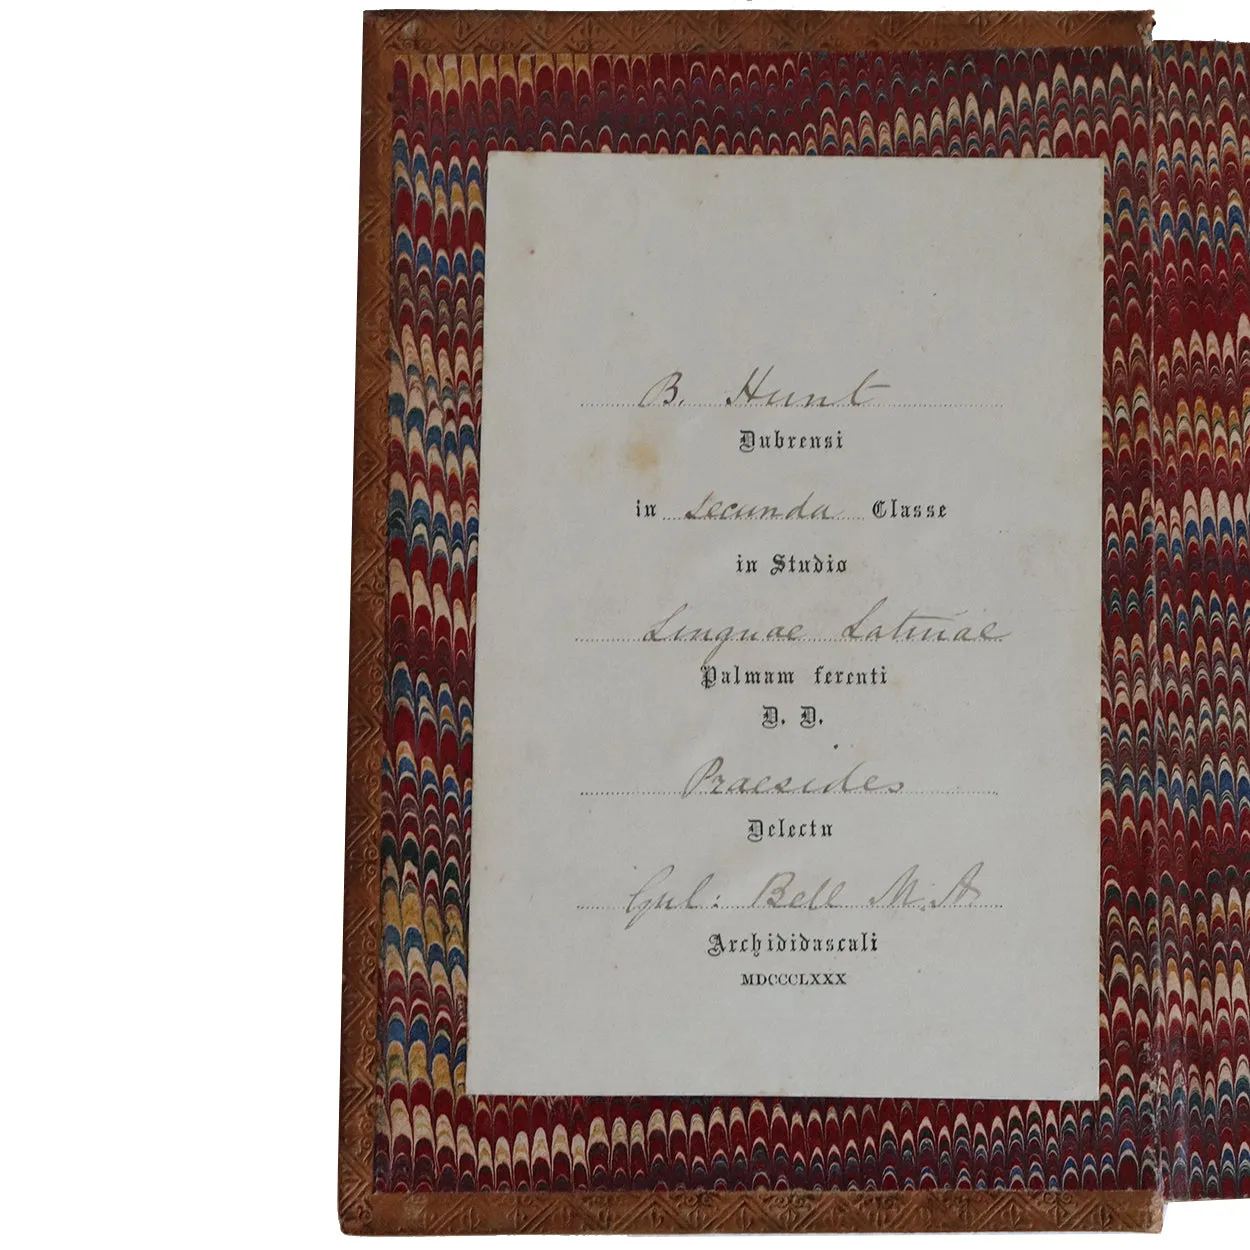 B. Hunt
Dubrensi
in secunda Classe
in Studio
Linguae Latinae
Palmam ferenti
D. D.
Praesides
Delectu
Gul: Bell M.A.
Archididascali
MDCCCLXXX